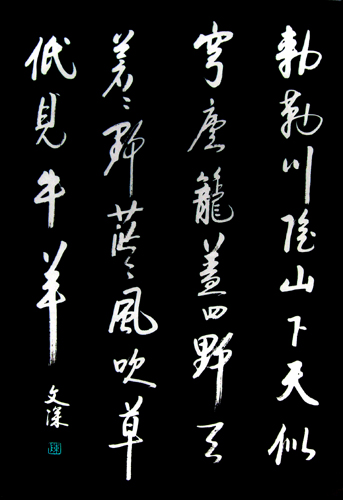 勅勒川陰山下天似
穹廬籠盖四野天
蒼々野茫々風吹草
低見牛羊
文深